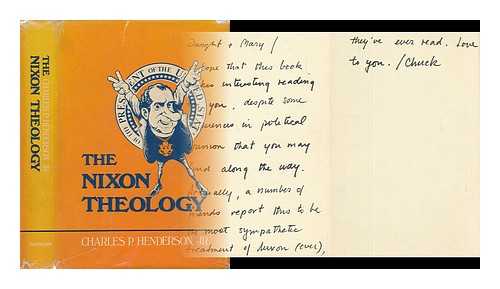 THE NIXON THEOLOGY
CHARLES P. HENDERSON, JR.
PRESIDENT OF THE UNITED STATES
THE
NIXON
THEOLOGY
CHARLES P. HENDERSON, JR.
Dwight & Mary /
ope that this book
kes interesting reading
you, despite some
erences in political
inion that you may
nd along the way.
tually, a number of
ends report this to be
most sympathetic
treatment of Nixon (ever),
they've ever read. Love
to you. / Chuck